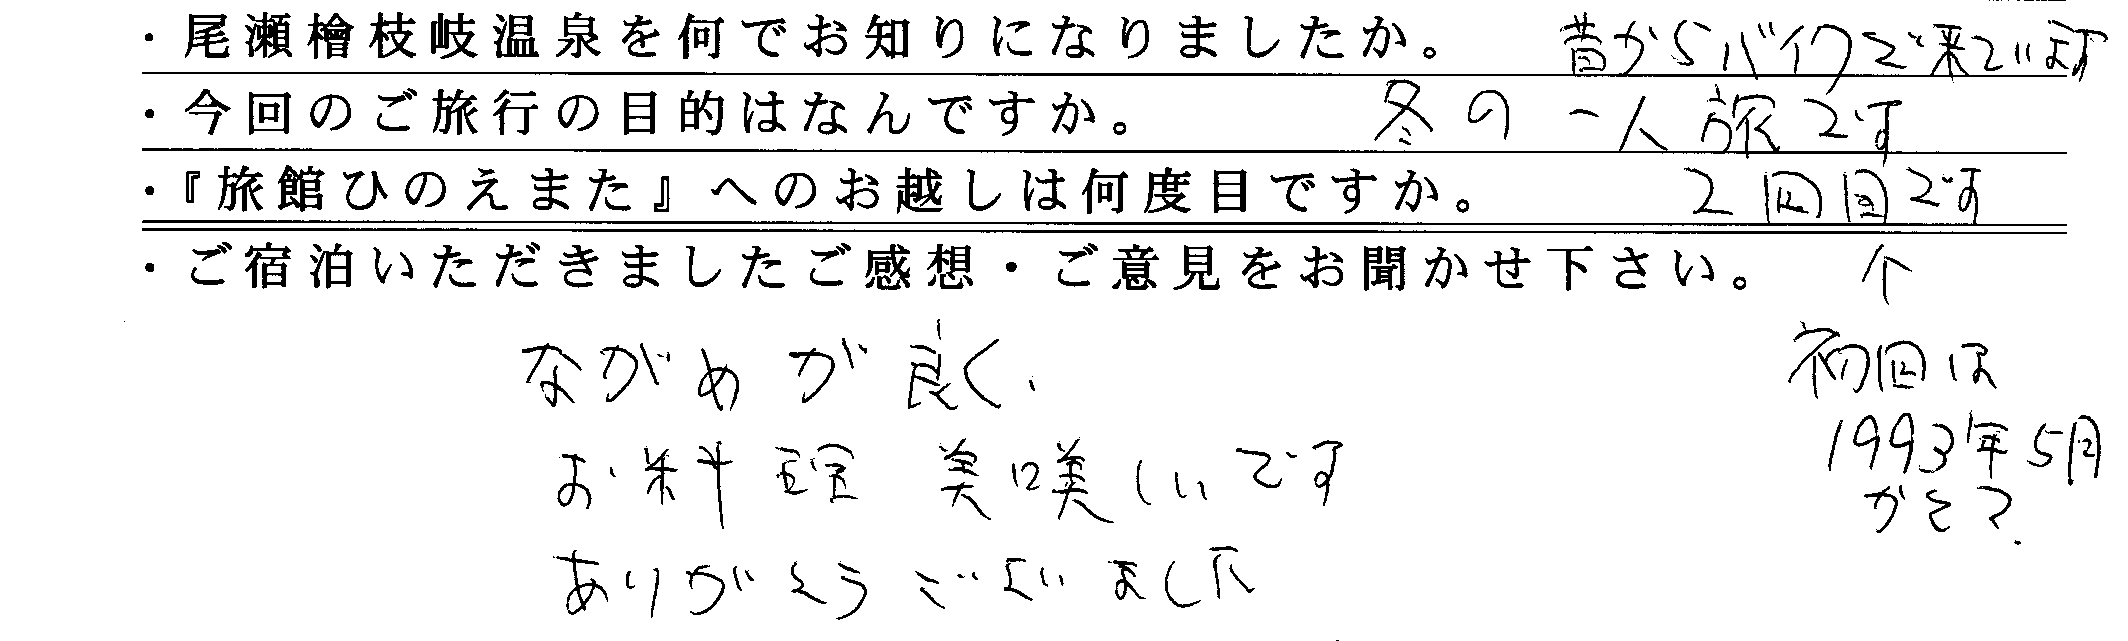 ・尾瀬檜枝岐温泉を何でお知りになりましたか。 昔からバイクで来ています
・今回のご旅行の目的はなんですか。 冬の一人旅です
・『旅館ひのえまた』へのお越しは何度目ですか。 2回目です
・ご宿泊いただきましたご感想・ご意見をお聞かせ下さい。 ↑
初回は
1993年5月
かな?
ながめが良く、
お料理 美味しいです
ありがとうございました